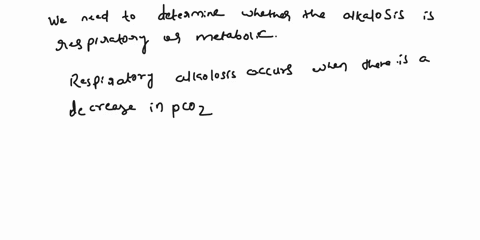 We need to determine whether the alkalosis is
respiratory or metabolic.
Respiratory alkolosis occurs when there is a
decrease in pCO2